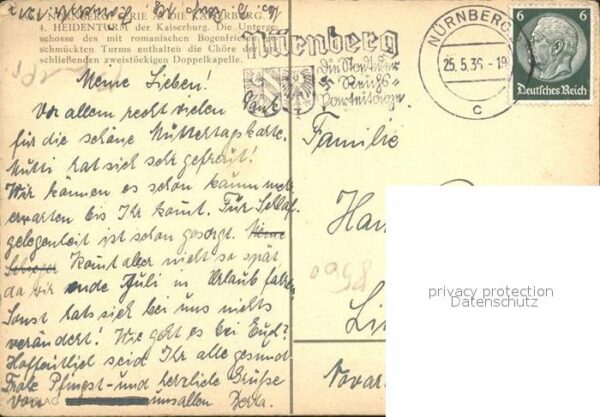 NÜRNBERG
4. HEIDENTURM der Kaiserburg. Die Unterge-
schosse des mit romanischen Bogenfriesen ge-
schmückten Turms enthalten die Chöre der an-
schließenden zweistöckigen Doppelkapelle.
Meine Lieben!
Vor allem recht vielen Dank
für die schöne Muttertagskarte.
Mutti hat sich sehr gefreut!
Wir können es schon kaum mehr
erwarten bis Ihr kommt. Für Schlaf-
gelegenheit ist schon gesorgt.
Komt aber nicht so spät
da wir ende Juli in Urlaub fahren
Sonst hats sich bei uns nichts
verändert! Wie geht es bei Euch?
Hoffentlich seid Ihr alle gesund
Frohe Pfingst- und herzliche Grüße
von uns allen
VERLAG
Nürnberg
Die Stadt der
Reichs-
parteitage
NÜRNBERG
25.5.36-19
c
6 6
Deutsches Reich
Familie
Han
Lin
Novar
privacy protection
Datenschutz